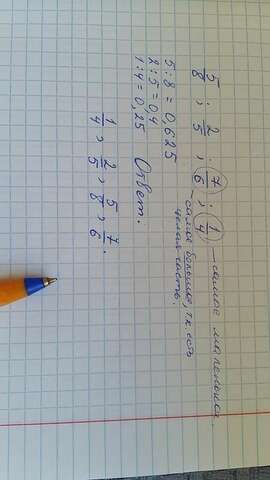 5/8; 2/5; 7/6; 1/4 – самое маленькое.
самая большая, т.к. есть
целая часть.
5:8=0,625
2:5=0,4
1:4=0,25
Ответ:
1/4, 2/5, 5/8, 7/6.